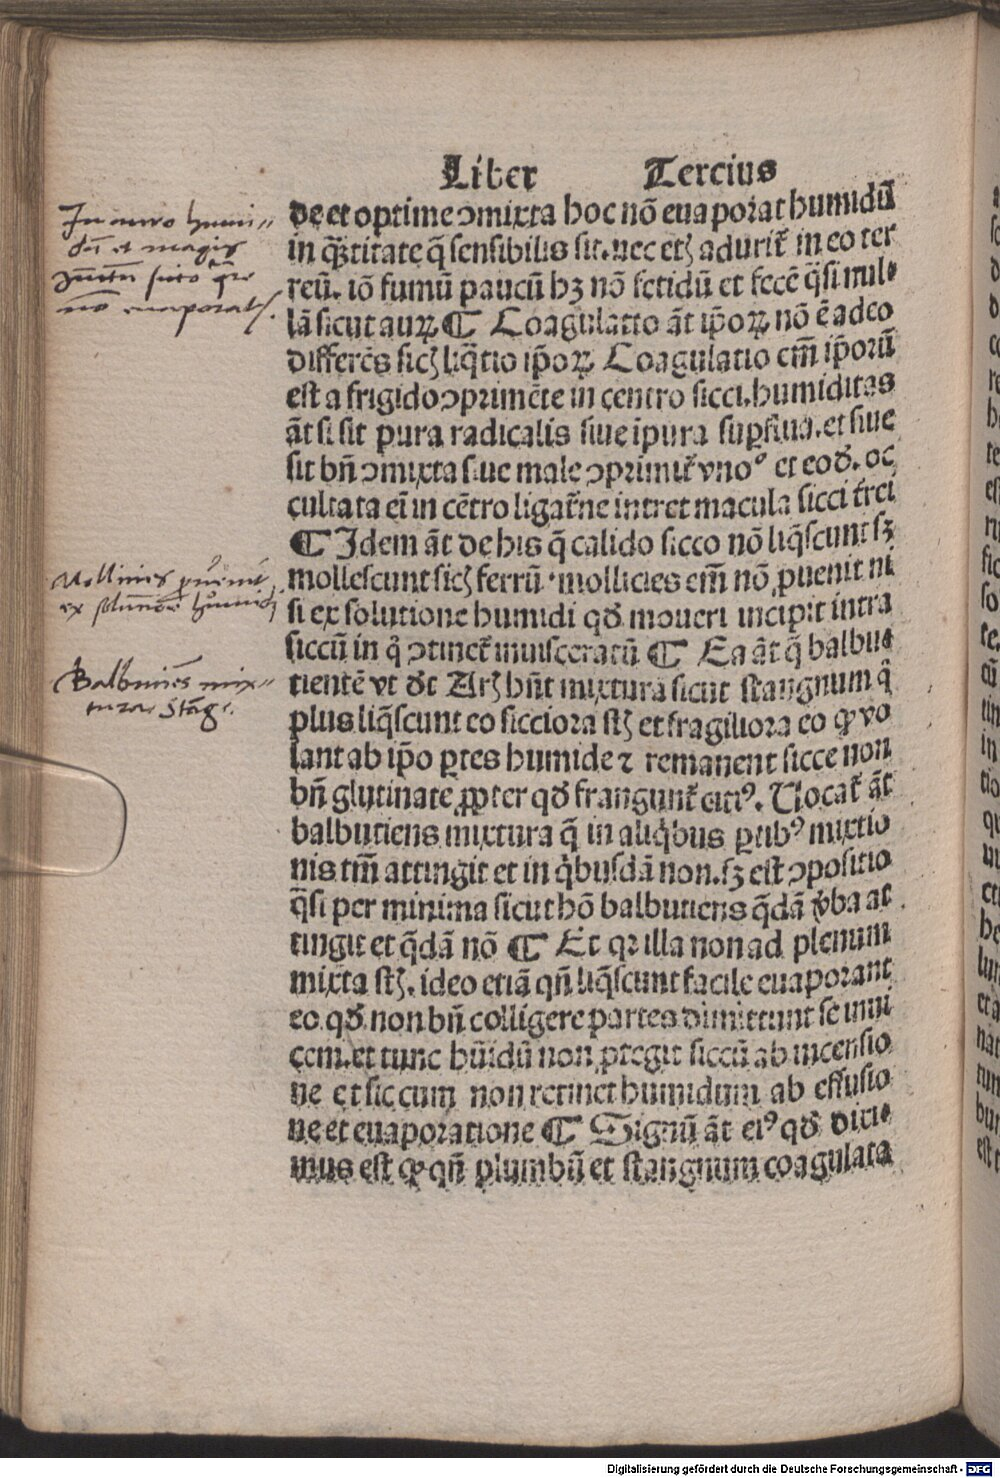 Liber Tercius
de et optime ↄmixta hoc nō euaporat humidū
in q̄titate q̄ sensibilis sit. nec etꝫ adurit᷑ in eo ter
reū. iō fumū paucū hꝫ nō fetidū et fecē q̄si nul-
lā sicut auꝝ ¶ Coagulatio āt ip̄oꝝ nō ē adeo
differēs sicꝫ liq̄tio ip̄oꝝ Coagulatio em̄ ip̄orū
est a frigido ↄprimēte in centro sicci. humiditas
āt si sit pura radicalis siue ipura suꝑflua. et siue
sit bn̄ ↄmixta siue male ↄprimit᷑ vno⁹ et eod̄. oc
cultata ei in cētro ligat᷑ ne intret macula sicci t᷑rei
¶ Idem āt de his q̄ calido sicco nō liq̄scunt sꝫ
mollescunt sicꝫ ferrū. mollicies em̄ nō ꝓuenit ni
si ex solutione humidi qd̄ moueri incipit intra
siccū in q̊ ↄtinet᷑ inuisceratū ¶ Ea āt q̄ balbu
tientē vt dt̄ Arꝫ hn̄t mixturā sicut stangnum q̊
plus liq̄scunt eo sicciora stꝫ et fragiliora eo ꝙ vo
lant ab ip̄o ꝑtes humide ⁊ remanent sicce non
bn̄ glutinate ꝓpter qd̄ frangunt᷑ citi⁹. Uocat᷑ āt
balbutiens mixtura q̄ in aliq̊bus ꝑtib⁹ mixtio
nis tm̄ attingit et in q̊busdā non. sꝫ est ↄpositio
q̄si per minima sicut hō balbutiens q̄dā v̄ba at
tingit et q̄dā nō ¶ Et qꝛ illa non ad plenum
mixta stꝫ. ideo etiā qn̄ liq̄scunt facile euaporant
eo. qd̄. non bn̄ colligere partes dimittunt se inui
cem. et tunc hūidū non ꝓtegit siccū ab incensio
ne et siccum non retinet humidum ab effusio
ne et euaporatione ¶ Signū āt ei⁹ qd̄ dixi-
mus est ꝙ qn̄ plumbū et stangnum coagulata
In auro humi-
dū et magis
euaporat
Mollicies ꝓuenit
ex solutione humidi
Balbutiēs mix-
tura Stāg.
Digitalisierung gefördert durch die Deutsche Forschungsgemeinschaft - DFG